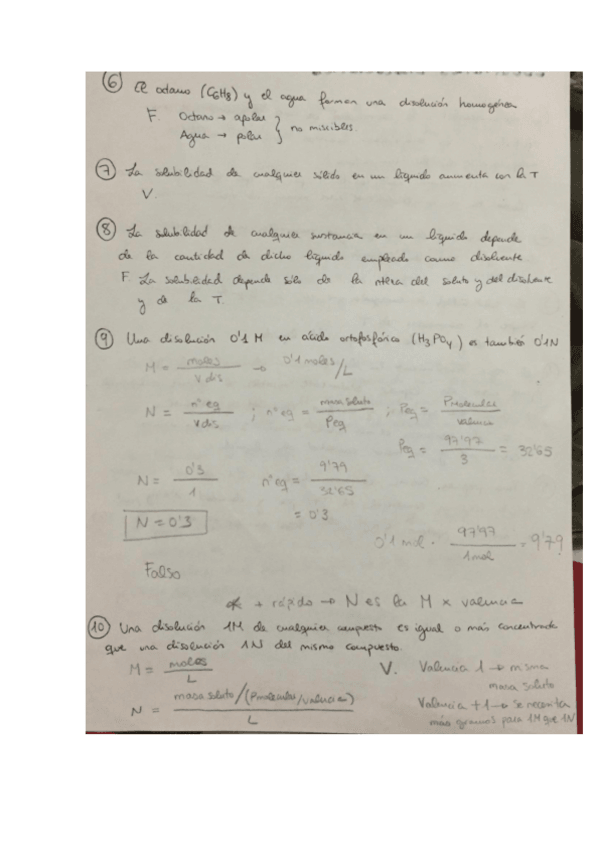 ⑥ El octano (C6H8) y el agua forman una disolución homogénea
F. Octano → apolar
Agua → polar } no miscibles.
⑦ La solubilidad de cualquier sólido en un líquido aumenta con la T
V.
⑧ La solubilidad de cualquier sustancia en un líquido depende
de la cantidad de dicho líquido empleado como disolvente
F. La solubilidad depende sólo de la ntlza del soluto y del disolvente
y de la T.
⑨ Una disolución 0'1 M en ácido ortofosfórico (H3PO4) es también 0'1N
M = moles / V dis → 0'1 moles/L
N = nº eq / V dis ; nº eq = masa soluto / Peq ; Peq = Pmolecular / valencia
Peq = 97'97 / 3 = 32'65
N = 0'3 / 1 nº eq = 9'79 / 32'65
N = 0'3 = 0'3
0'1 mol · 97'97 / 1 mol = 9'79
Falso
* + rápido → N es la M x valencia
⑩ Una disolución 1M de cualquier compuesto es igual o más concentrada
que una disolución 1N del mismo compuesto.
M = moles / L V. Valencia 1 → misma
masa soluto
N = masa soluto/(Pmolecular/valencia) / L Valencia +1 → se necesita
más gramos para 1M que 1N